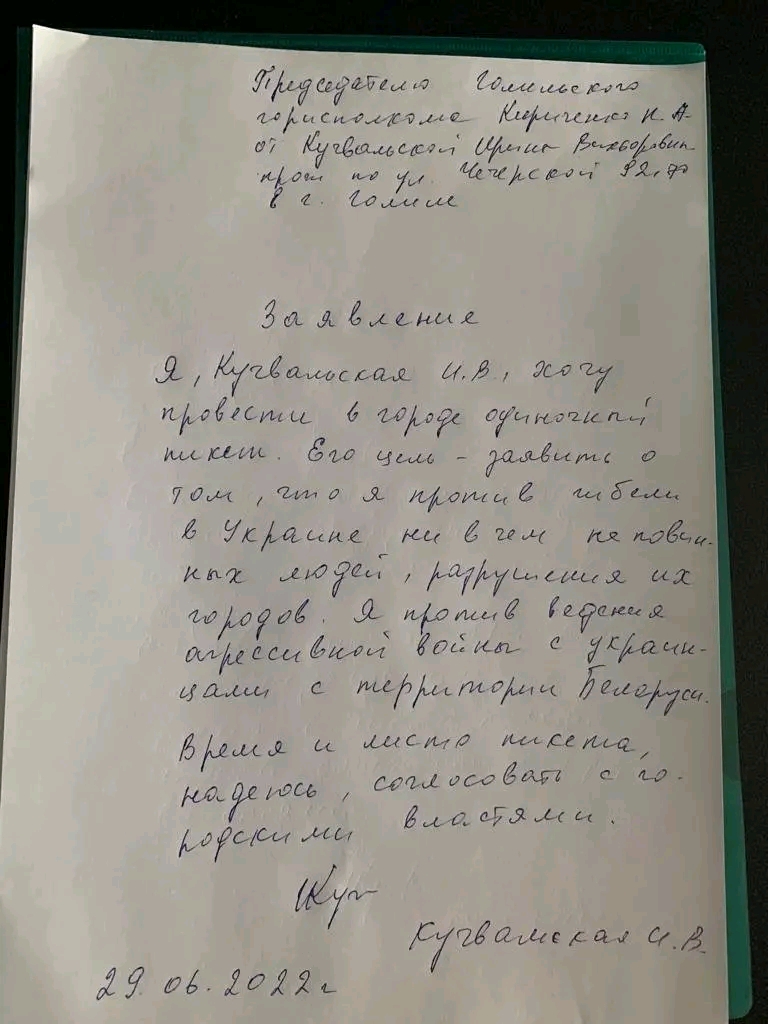 Председателю Гомельского
горисполкома Кириченко Н. А.
от Кучвальской Ирины Викторовны
прож по ул. Чечерской
в г. Гомеле
Заявление
Я, Кучвальская И.В., хочу
провести в городе одиночный
пикет. Его цель - заявить о
том, что я против гибели
в Украине ни в чем не повин-
ных людей, разрушения их
городов. Я против ведения
агрессивной войны с украин-
цами с территории Беларуси.
Время и место пикета,
надеюсь, согласовать с го-
родскими властями.
Кучвальская И. В.
29. 06. 2022 г